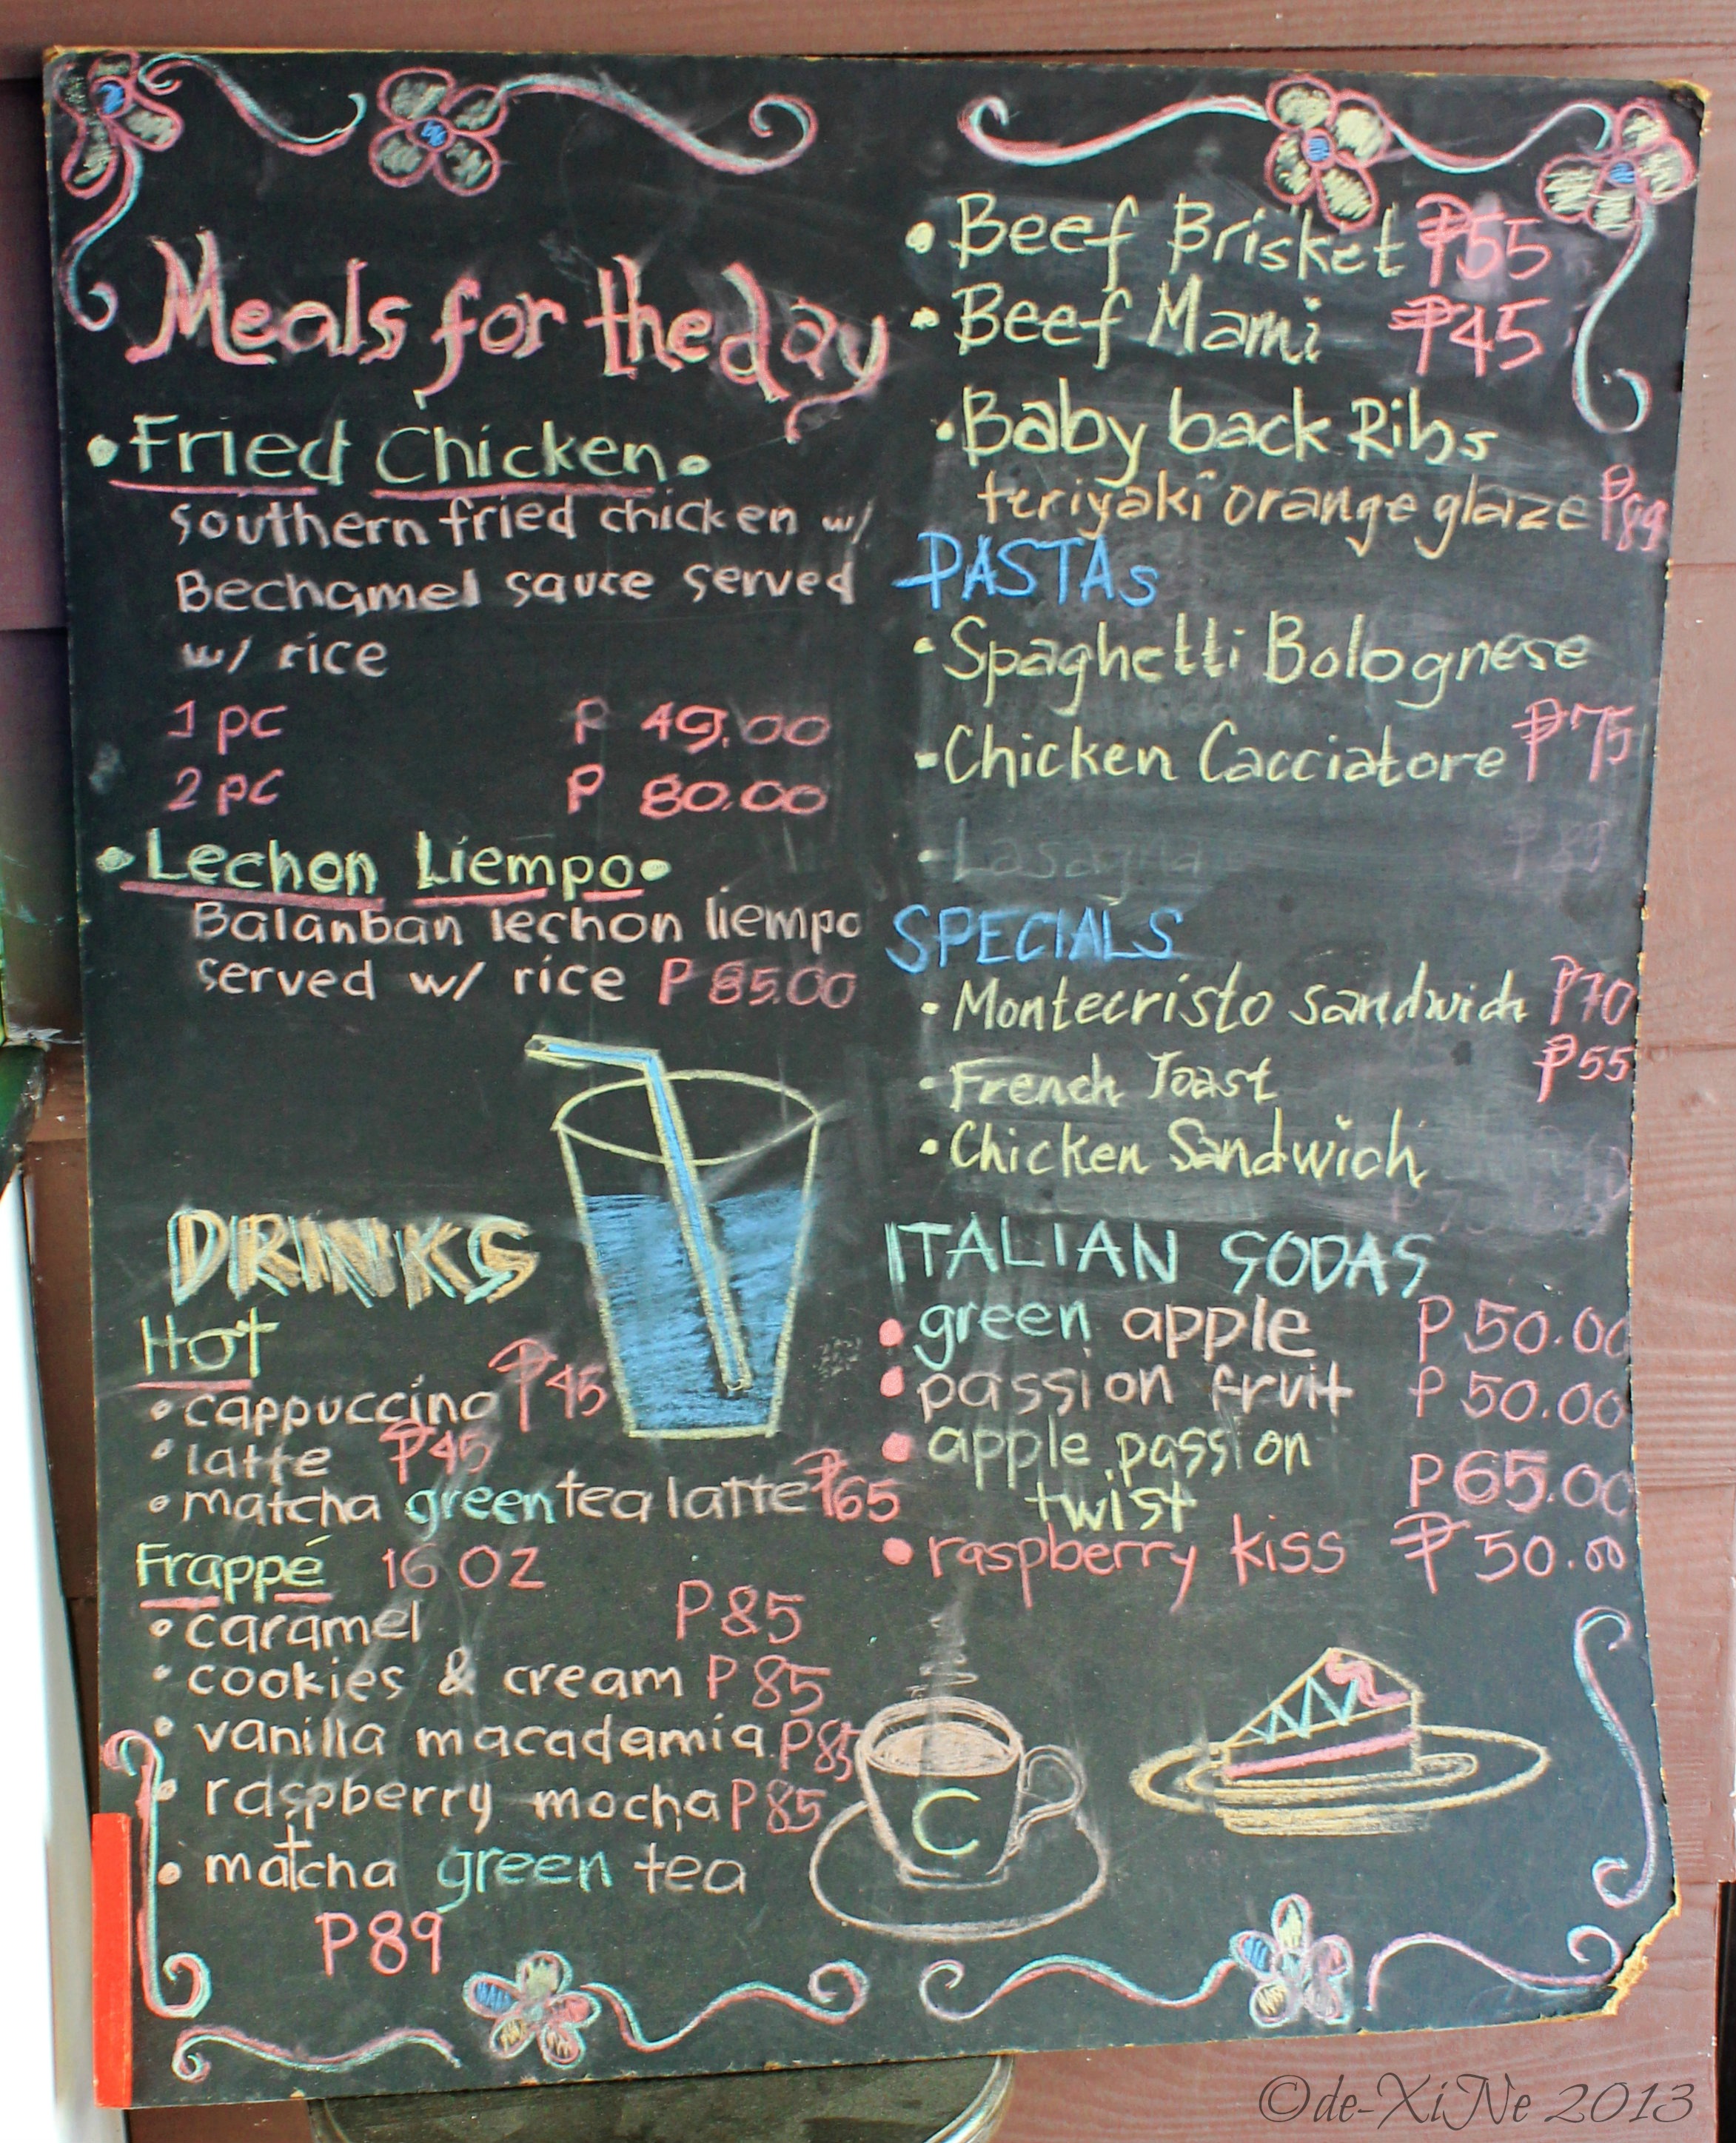 Meals for the day
• Fried Chicken •
southern fried chicken w/
Bechamel sauce served
w/ rice
1 pc P 49.00
2 pc P 80.00
• Lechon Liempo •
Balanban lechon liempo
served w/ rice P 85.00
DRINKS
Hot
• cappuccino ₱45
• latte ₱45
• matcha green tea latte ₱65
Frappé 16 OZ
• caramel P85
• cookies & cream P 85
• vanilla macadamia P85
• raspberry mocha P85
• matcha green tea
P89
• Beef Brisket ₱55
• Beef Mami ₱45
• Baby back Ribs
teriyaki orange glaze ₱89
PASTAs
• Spaghetti Bolognese
- Chicken Cacciatore ₱75
- Lasagna
SPECIALS
• Montecristo sandwich ₱70
- French Toast ₱55
• Chicken Sandwich
ITALIAN SODAS
• green apple P 50.00
• passion fruit P 50.00
• apple passion
twist P65.00
• raspberry kiss ₱ 50.00
C
©de-XiNe 2013